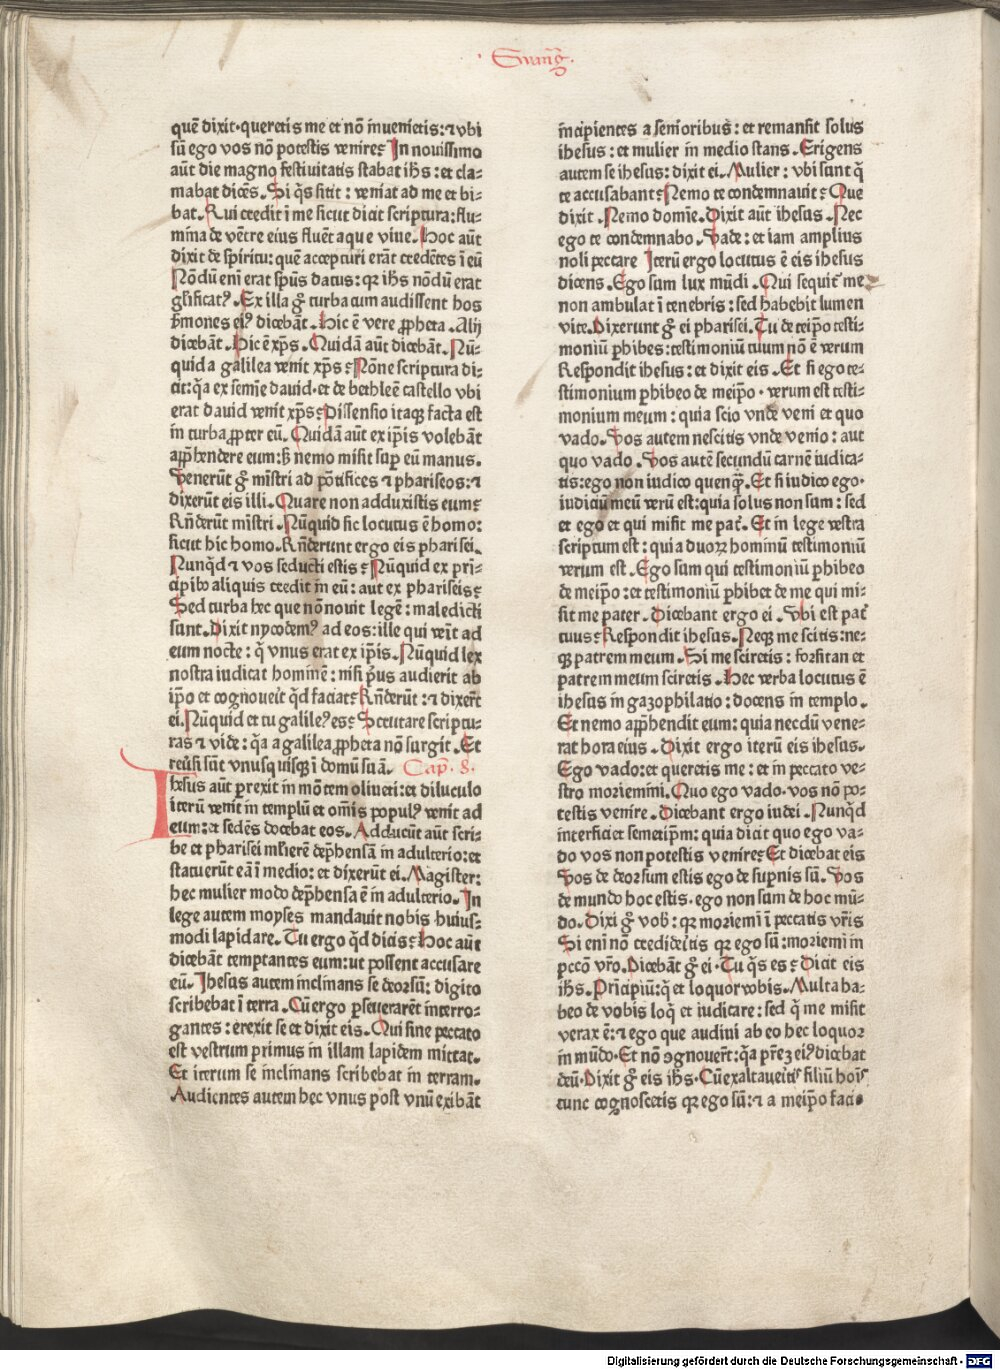 Evangͥ.
quē dixit·queretis me et nō inuenietis:⁊ vbi
sū ego vos nō potestis venire? In nouissimo
aūt die magno festiuitatis stabat ihs̄: et cla-
mabat dicēs. Si q̄s sitit: veniat ad me et bi-
bat. Rui credit ī me sicut dicit scriptura: flu-
mina de vētre eius fluēt aque viue. Hoc aūt
dixit de spiritu: quē accepturi erāt credētes ī eū
Nōdū eni erat spūs datus: qꝛ ihs̄ nōdū erat
glificatꝰ. Ex illa gͦ turba cum audissent hos
ẜmones eiꝰ dicebāt. Hic ē vere ꝓpheta. Alij
dicebāt. Hic ē xp̄s. Quidā aūt dicebāt. Nū-
quid a galilea venit xp̄s? Nōne scriptura di-
cit: q̄a ex semīe dauid· et de bethleē castello vbi
erat dauid venit xp̄s? Dissensio itaqꝫ facta est
in turba ꝓpter eū. Quidā aūt ex ip̄is volebāt
app̄hendere eum: ß nemo misit suꝑ eū manus.
Venerūt gͦ mīstri ad pōtifices ⁊ phariseos: ⁊
dixerūt eis illi. Quare non adduxistis eum?
Rn̄derūt mīstri. Nūquid sic locutus ē homo:
sicut hic homo. Rn̄derunt ergo eis pharisei.
Nunqd ⁊ vos seducti estis? Nūquid ex prī-
cipibꝰ aliquis credit in eū: aut ex phariseis?
Sed turba hec que nō nouit legē: maledicti
sunt. Dixit nycodemꝰ ad eos: ille qui venit ad
eum nocte: q̄ vnus erat ex ip̄is. Nūquid lex
nostra iudicat hominē: nisi p̄us audierit ab
ip̄o et cognouerit qd faciat? Rn̄derūt: ⁊ dixerūt
ei. Nūquid et tu galileꝰ es? Scrutare scriptu-
ras ⁊ vide: q̄a a galilea ꝓpheta nō surgit. Et
reūsi sūt vnusquisqꝫ ī domū suā. Cap. 8.
Ihesus aūt ꝑrexit in mōtem oliueti: et diluculo
iterū venit in templū et om̄is populꝰ venit ad
eum: et sedēs docebat eos. Adducūt aūt scri-
be et pharisei ml̄ierē dep̄hensā in adulterio: et
statuerūt eā ī medio: et dixerūt ei. Magister:
hec mulier modo dep̄hensa ē in adulterio. In
lege autem moyses mandauit nobis huius-
modi lapidare. Tu ergo qd dicis? Hoc aūt
dicebāt temptantes eum: ut possent accusare
eū. Ihesus autem inclinans se deorsū: digito
scribebat ī terra. Cū ergo ꝑseuerarēt interro-
gantes: erexit se et dixit eis. Qui sine peccato
est vestrum primus in illam lapidem mittat.
Et iterum se inclinans scribebat in terram.
Audientes autem hec vnus post vnū exibāt
incipientes a senioribus: et remansit solus
ihesus: et mulier in medio stans. Erigens
autem se ihesus: dixit ei. Mulier: vbi sunt q̄
te accusabant? Nemo te condemnauit? Que
dixit. Nemo domīe. Dixit aūt ihesus. Nec
ego te condemnabo. Vade: et iam amplius
noli peccare Iterū ergo locutus ē eis ihesus
dicens. Ego sum lux mūdi. Qui sequit᷑ me
non ambulat ī tenebris: sed habebit lumen
vite. Dixerunt gͦ ei pharisei. Tu de teip̄o testi-
moniū ꝑhibes: testimoniū tuum nō ē verum
Respondit ihesus: et dixit eis. Et si ego te-
stimonium ꝑhibeo de meip̄o· verum est testi-
monium meum: quia scio vnde veni et quo
vado. Vos autem nescitis vnde venio: aut
quo vado. Vos autē secundū carnē iudica-
tis: ego non iudico quenqꝫ. Et si iudico ego·
iudiciū meū verū est: quia solus non sum: sed
et ego et qui misit me pat̄. Et in lege vestra
scriptum est: quia duoꝝ hominū testimoniū
verum est. Ego sum qui testimoniū ꝑhibeo
de meip̄o: et testimoniū ꝑhibet de me qui mi-
sit me pater. Dicebant ergo ei. Vbi est pat̄
tuus? Respondit ihesus. Neqꝫ me scitis: ne-
qꝫ patrem meum. Si me sciretis: forsitan et
patrem meum sciretis. Hec verba locutus ē
ihesus in gazophilatio: docens in templo.
Et nemo app̄hendit eum: quia necdū vene-
rat hora eius. Dixit ergo iterū eis ihesus.
Ego vado: et queretis me: et in peccato ve-
stro moriemini. Quo ego vado· vos nō po-
testis venire. Dicebant ergo iudei. Nunqd
interficiet semetip̄m: quia dicit quo ego va-
do vos non potestis venire? Et dicebat eis
Vos de deorsum estis ego de suꝑnis sū. Vos
de mundo hoc estis· ego non sum de hoc mū-
do. Dixi gͦ vob̄: qꝛ moriemi ī peccatis vr̄is
Si eni nō credideritis qꝛ ego sū: moriemi in
pccō vr̄o. Dicebāt gͦ ei. Tu q̄s es? Dicit eis
ihs̄. Prīcipiū: q̄ et loquor vobis. Multa ha-
beo de vobis loq̄ et iudicare: sed q̄ me misit
verax ē: ⁊ ego que audiui ab eo hec loquor
in mūdo. Et nō ꝯgnouer̄t: q̄a pr̄ez eiꝰ dicebat
deū. Dixit gͦ eis ihs̄. Cū exaltaueritꝭ filiū hoīs
tunc cognoscetis qꝛ ego sū: ⁊ a meip̄o facio
Digitalisierung gefördert durch die Deutsche Forschungsgemeinschaft - DFG